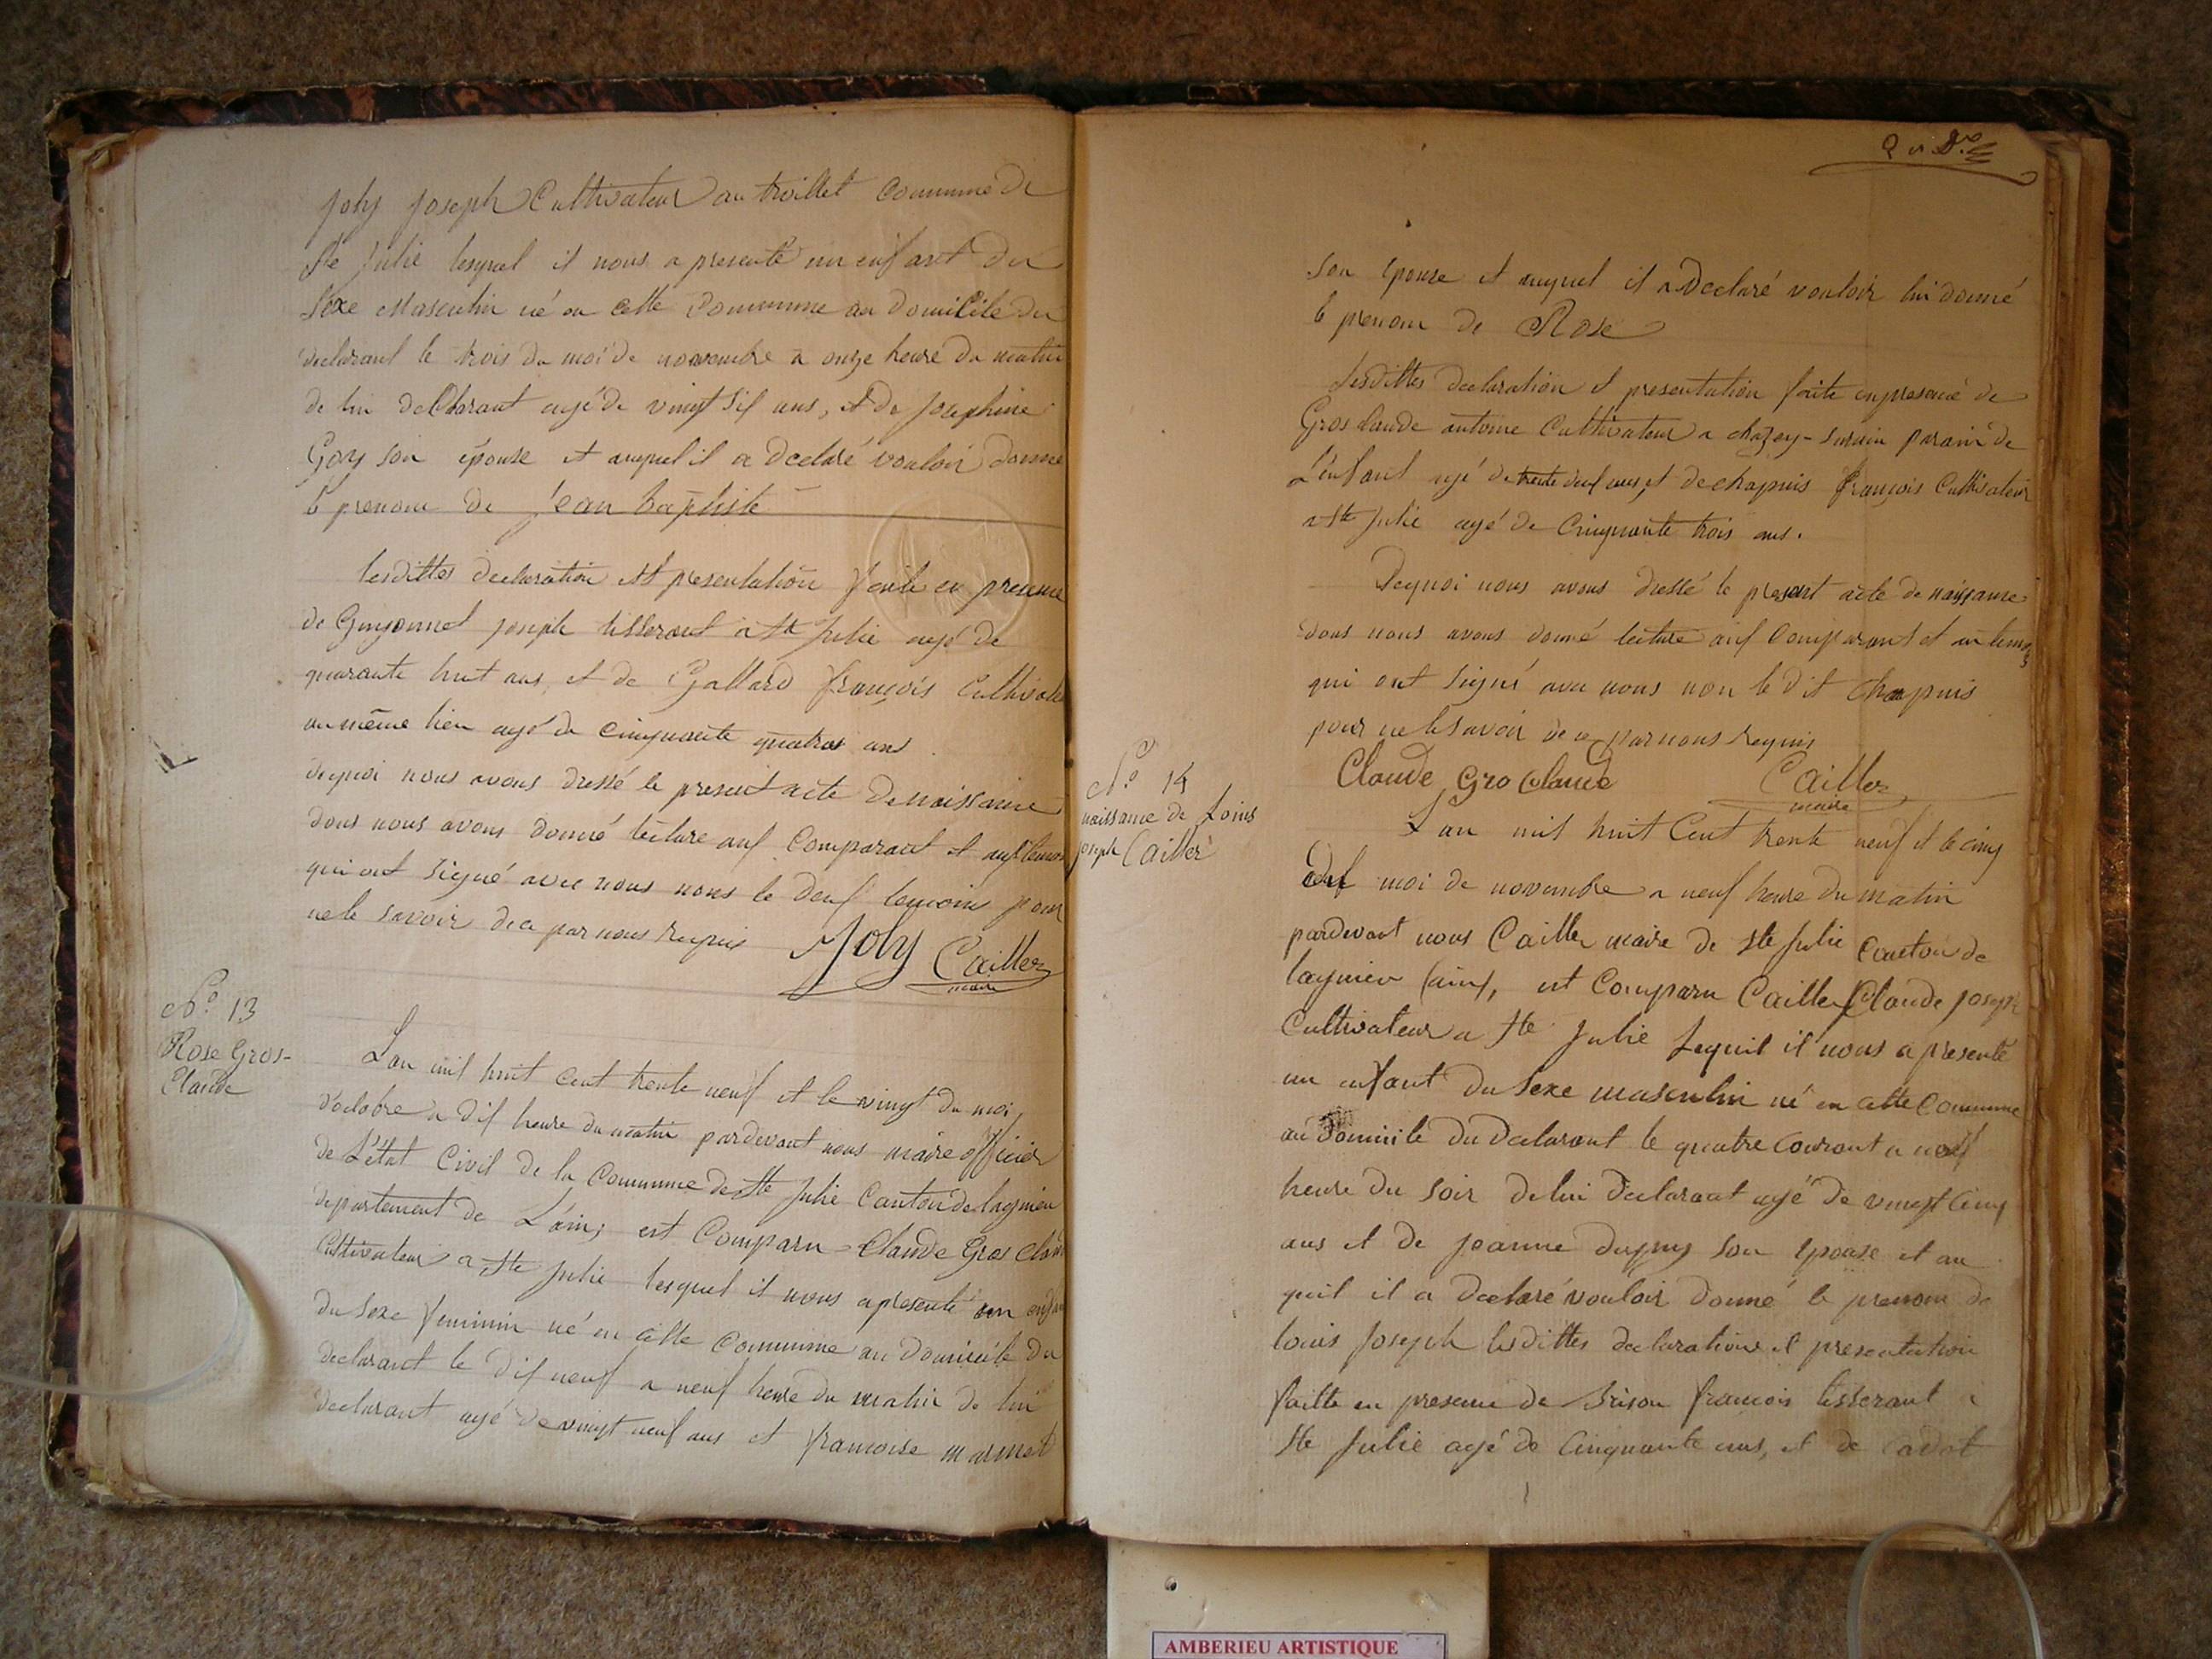 Joly Joseph Cultivateur au troillet Commune de
Ste Julie lesquel il nous a presenté un enfant du
Sexe Masculin né en cette Commune au domicile du
declarant le trois du moi de novembre a onze heure du matin
de lui declarant agé de vingt sif ans, et de Josephine
Goy son épouse et auquel il a declaré vouloir donné
le prenom de Jean baptiste
lesdittes declaration et presentation faite en presence
de Guyonnet joseph tisserant a Ste Julie agé de
quarante huit ans, et de Gallard françois Cultivateur
au même lieu agé de cinquante quatre ans
dequoi nous avons dressé le present acte de naissance
dous nous avons donné lecture auf Comparant et auf temoin
qui ont signé avec nous nous le deuf temoins pour
ne le savoir de ce par nous requis Joly Cailler
maire
N.º 13
Rose Gros-
Claude
L'an mil huit cent trente neuf et le vingt du moi
d'octobre a dif heure du matin pardevant nous maire officier
de L'état Civil de la Commune de Ste Julie Canton de lagnieu
departement de L'ain, est Comparu Claude Gros Claude
Cultivateur a Ste Julie lesquel il nous a presenté un enfant
du Sexe feminin né en cette Commune au domicile du
declarant le dif neuf a neuf heure du matin de lui
declarant agé de vingt neuf ans et francoise marmet
son épouse et auquel il a declaré vouloir lui donné
le prenom de Rose
Lesdittes declaration et presentation faite en presence de
Gros claude antoine Cultivateur a chazey-surain parain de
L'enfant agé de trente deuf ans, et de chapuis françois Cultivateur
a Ste Julie agé de Cinquante trois ans.
Dequoi nous avons dressé le present acte de naissance
dous nous avons donné lecture auf Comparant et au temoin
qui ont signé avec nous non le dit Chapuis
pour ne le savoir de ce par nous requis
Claude Gro Claude Cailler
maire
N.º 14
naissance de Louis
joseph Cailler
L'an mil huit Cent trente neuf et le cinq
du moi de novembre a neuf heure du matin
pardevant nous Cailler maire de Ste Julie Canton de
lagnieu (ain), est Comparu Cailler Claude joseph
Cultivateur a Ste Julie Lequil il nous a presenté
un enfant du Sexe masculin né en cette Commune
au domicile du declarant le quatre courant a neuf
heure du soir de lui declarant agé de vingt cinq
ans et de jeanne dupuy son épouse et au
quil il a declaré vouloir donné le prenom de
louis Joseph lesdittes declarations et presentation
faitte en presence de brison francois tisserant a
Ste Julie agé de cinquante ans, et de cadot
AMBERIEU ARTISTIQUE